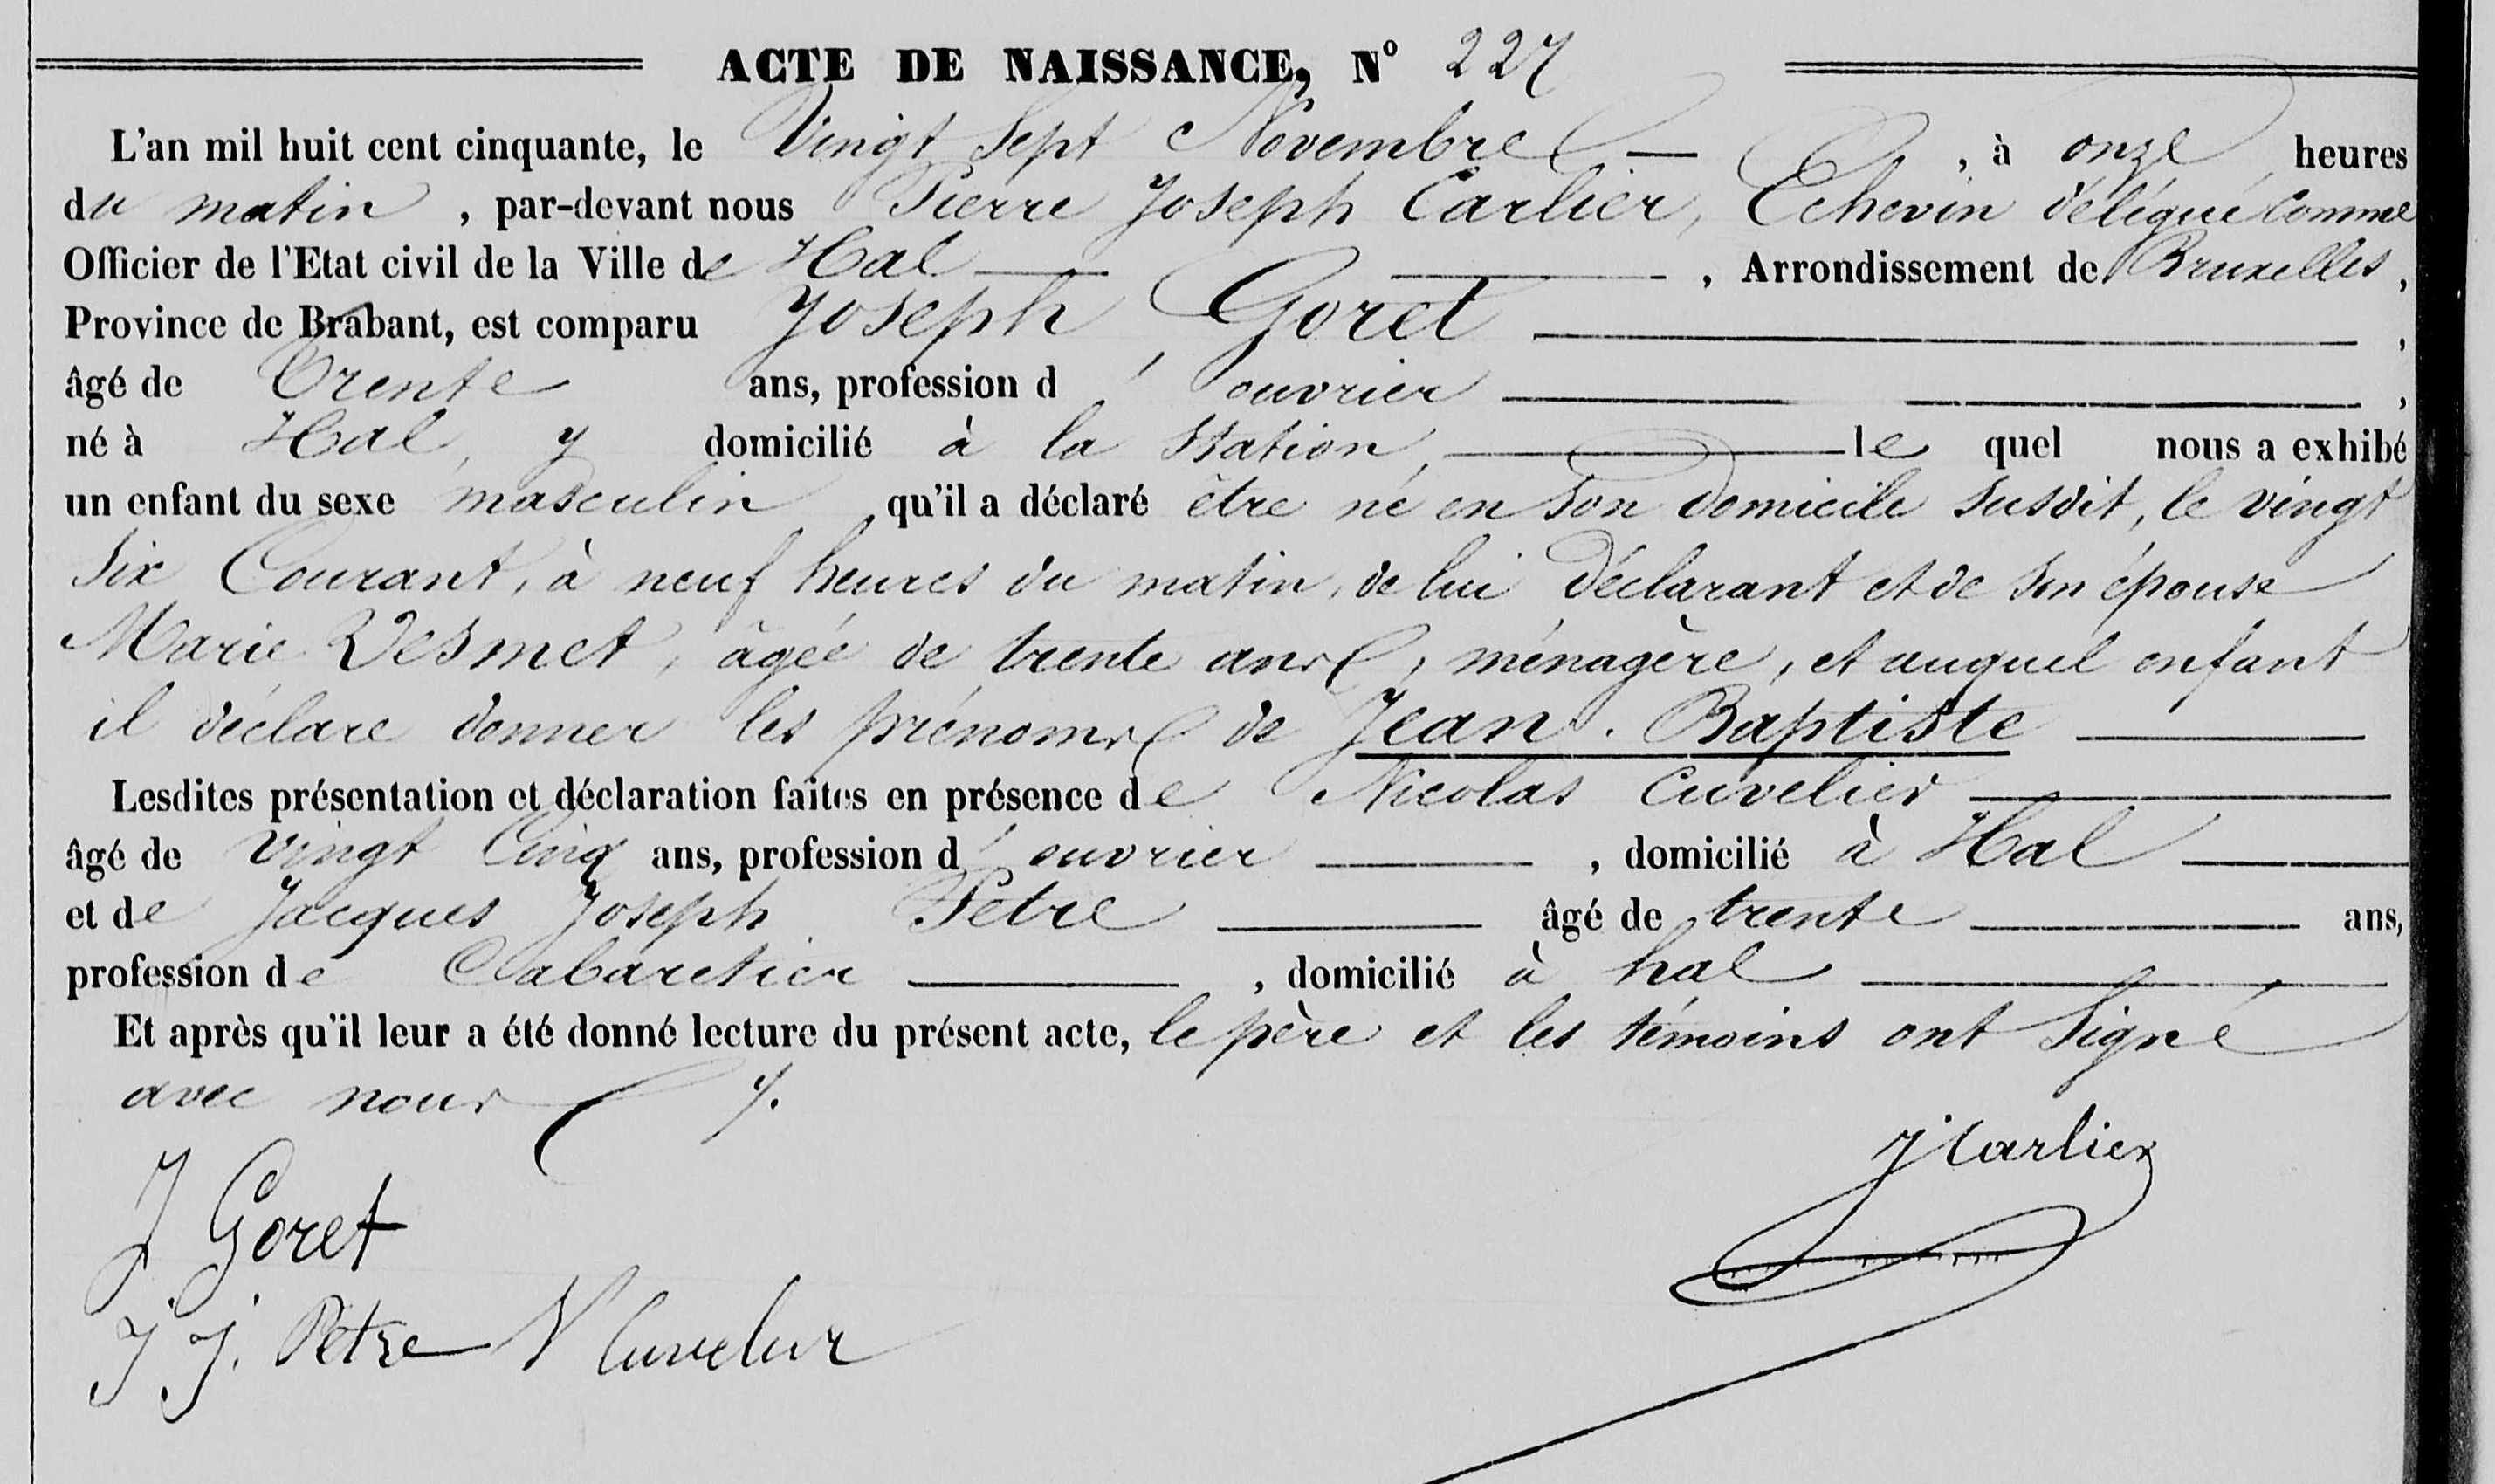 ACTE DE NAISSANCE, N° 227
L'an mil huit cent cinquante, le Vingt Sept Novembre — , à onze heures
du matin , par-devant nous Pierre Joseph Carlier, Echevin délégué comme
Officier de l'Etat civil de la Ville de Hal — — , Arrondissement de Bruxelles,
Province de Brabant, est comparu Joseph Goret — ,
âgé de Trente ans, profession d'ouvrier — — ,
né à Hal, y domicilié à la Station, — lequel nous a exhibé
un enfant du sexe masculin qu'il a déclaré être né en son domicile susdit, le vingt
Six Courant, à neuf heures du matin, de lui Déclarant et de son épouse
Marie Desmet, âgée de trente ans, ménagère, et auquel enfant
il déclare donner les prénoms de Jean-Baptiste —
Lesdites présentation et déclaration faites en présence de Nicolas Cuvelier —
âgé de Vingt Cinq ans, profession d'ouvrier — , domicilié à Hal —
et de Jacques Joseph Petre — âgé de trente — ans,
profession de Cabaretier — , domicilié à hal —
Et après qu'il leur a été donné lecture du présent acte, le père et les témoins ont Signé
avec nous
J Goret
J Carlier
J J. Petre N Cuvelier